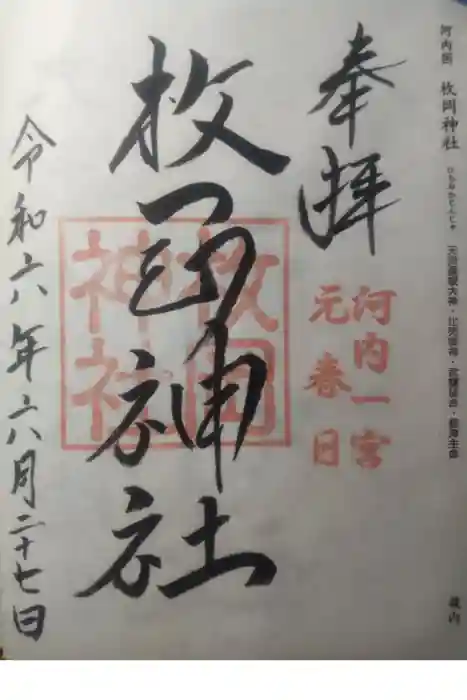 河内国 枚岡神社 ひらおかじんじゃ 天児屋根大神・比売御神・武甕槌命・経津主命
奉拝
河内一宮
元春日
枚岡神社
枚岡
神社
令和六年六月二十七日